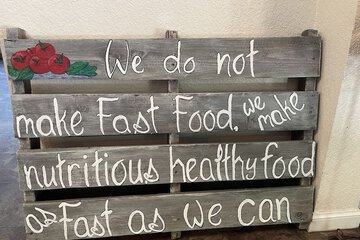 We do not
make Fast Food. we make
nutritious healthy Food
as Fast as we can